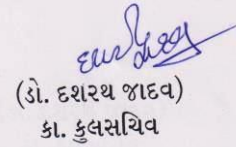 (ડો. દશરથ જાદવ)
કા. કુલસચિવ